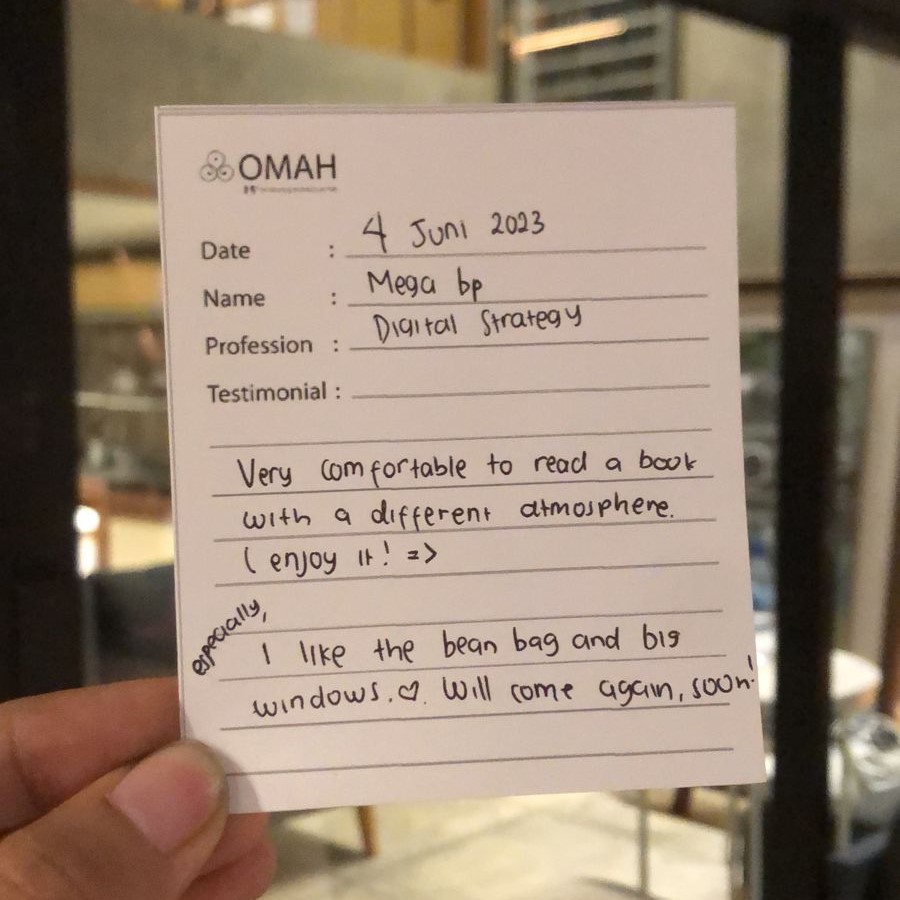 OMAH
Date : 4 Juni 2023
Name : Mega bp
Profession : Digital Strategy
Testimonial :
Very comfortable to read a book
with a different atmosphere.
( enjoy it! =>
especially,
I like the bean bag and big
windows.♡. Will come again, soon!